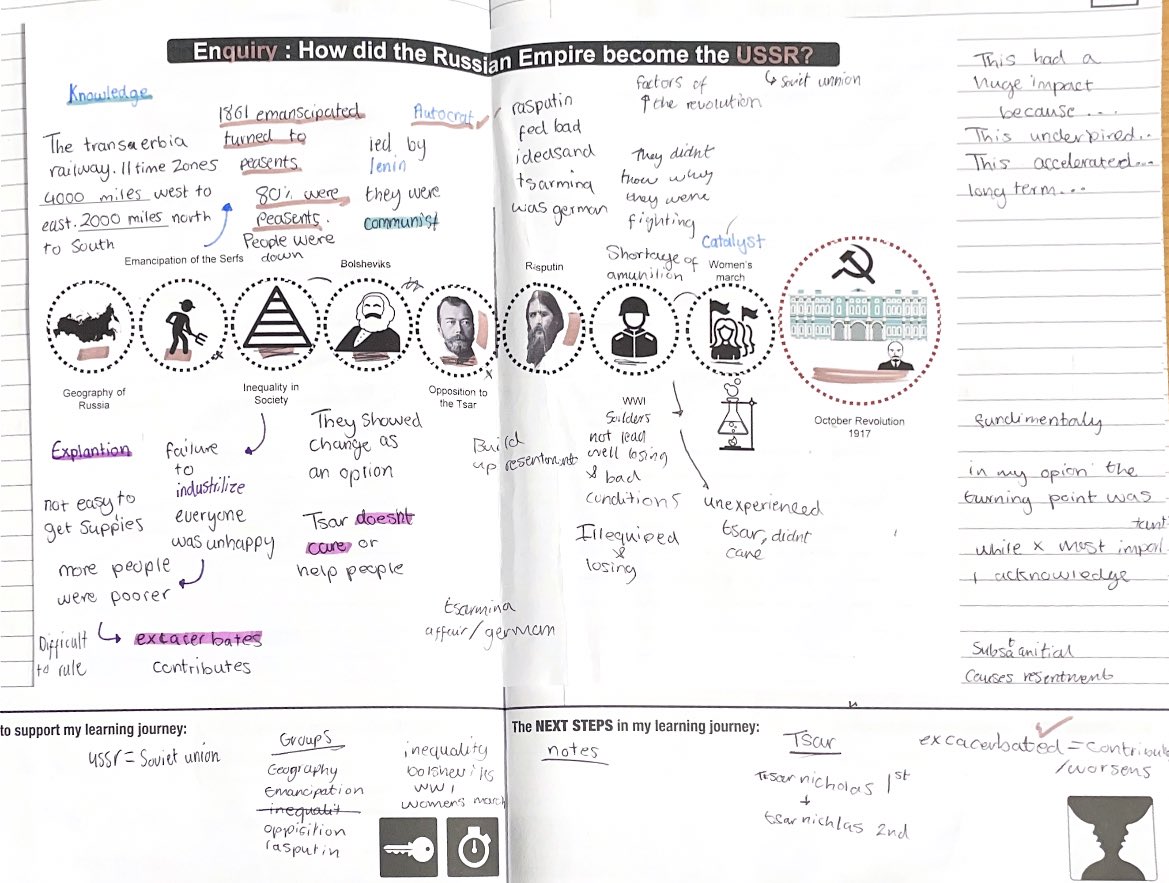 Enquiry : How did the Russian Empire become the USSR?
↳ Soviet unnion
factors of
↑ the revolution
Knowledge
The transaerbia
railway. 11 time zones
4000 miles west to
east. 2000 miles north
to South
1861 emanscipated
turned to
peasents.
80% were
peasents.
People were
down
Autocrat
led by
lenin
they were
communist
rasputin
fed bad
ideasand
tsarmina
was german
They didnt
know why
they were
fighting
Shortage of
amunition
Catalyst
Emancipation of the Serfs
Bolsheviks
Risputin
Women's
march
Geography of
Russia
Inequality in
Society
Opposition to
the Tsar
WWI
October Revolution
1917
Explantion
not easy to
get suppies
more people
were poorer
Difficult
to rule
excacerbates
contributes
failure
to
industrilize
everyone
was unhappy
They showed
change as
an option
Tsar doesnt
care or
help people
Build
up resentment
tsarmina
affair/german
Soilders
not lead
well losing
& bad
conditions
Illequiped
&
losing
unexperienced
tsar, didnt
care
This had a
huge impact
because ....
This underpired..
This accelerated...
long term...
fundimentaly
in my opion the
turning point was
tant
while x most impor
I acknowledge
Substanitial
Causes resentment
to support my learning journey:
ussr = Soviet union
Groups
Geography
Emancipation
inequalit
oppisition
rasputin
inequality
bolsheviks
WW1
womens march
The NEXT STEPS in my learning journey:
notes
Tsar
Tsar nicholas 1st
↓
tsar nichlas 2nd
excacerbated = contribut
/worsens